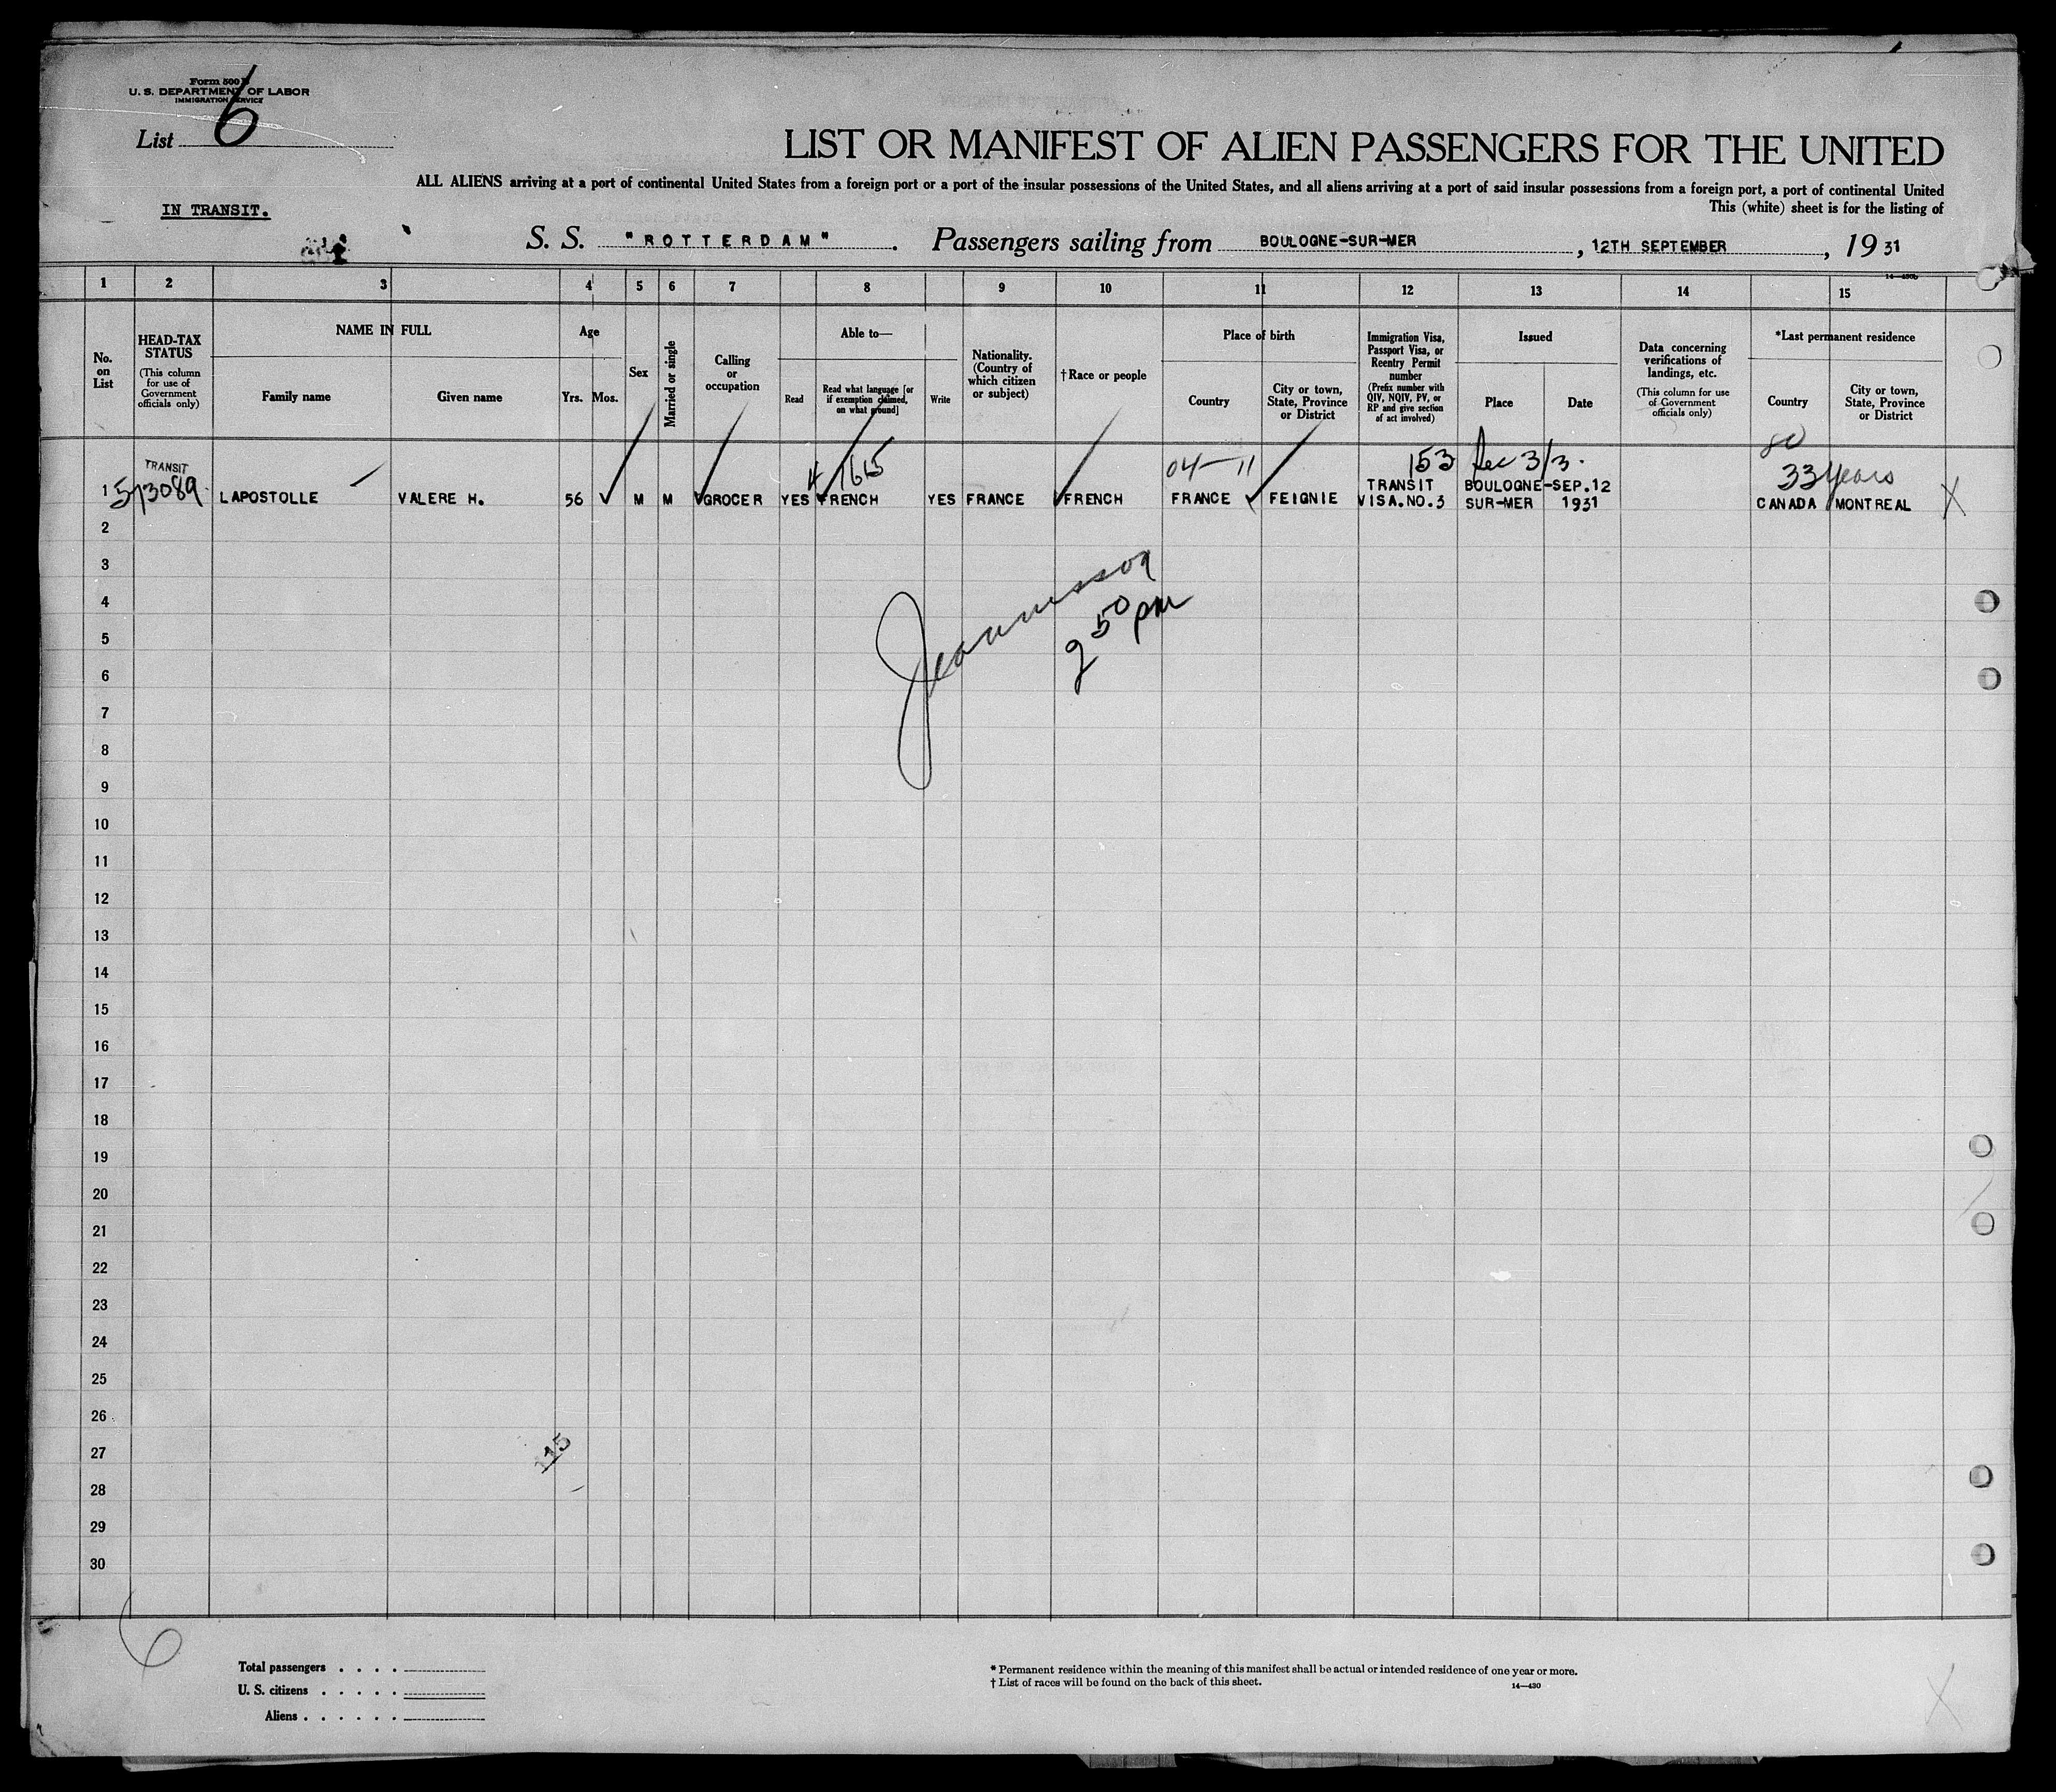 Form 500 B
U. S. DEPARTMENT OF LABOR
IMMIGRATION SERVICE
List 6
LIST OR MANIFEST OF ALIEN PASSENGERS FOR THE UNITED
ALL ALIENS arriving at a port of continental United States from a foreign port or a port of the insular possessions of the United States, and all aliens arriving at a port of said insular possessions from a foreign port, a port of continental United
This (white) sheet is for the listing of
IN TRANSIT.
S. S. "ROTTERDAM". Passengers sailing from BOULOGNE-SUR-MER, 12TH SEPTEMBER, 1931
1 2 3 4 5 6 7 8 9 10 11 12 13 14 15
No. on List
HEAD-TAX STATUS
(This column for use of Government officials only)
NAME IN FULL
Family name
Given name
Age
Yrs. Mos.
Sex
Married or single
Calling or occupation
Able to—
Read
Read what language [or if exemption claimed, on what ground]
Write
Nationality. (Country of which citizen or subject)
†Race or people
Place of birth
Country
City or town, State, Province or District
Immigration Visa, Passport Visa, or Reentry Permit number
(Prefix number with QIV, NQIV, PV, or RP and give section of act involved)
Issued
Place
Date
Data concerning verifications of landings, etc.
(This column for use of Government officials only)
*Last permanent residence
Country
City or town, State, Province or District
80
153
1665
04-11
33 years
TRANSIT
TRANSIT BOULOGNE-SEP.12
1 5/13089 LAPOSTOLLE VALERE H. 56 M M GROCER YES FRENCH YES FRANCE FRENCH FRANCE FEIGNIE VISA.NO.3 SUR-MER 1931 CANADA MONTREAL X
2
3
4
5
6
7
8
9
10
11
12
13
14
15
16
17
18
19
20
21
22
23
24
25
26
27
28
29
30
2 50 pm
6
Total passengers
U. S. citizens
Aliens
* Permanent residence within the meaning of this manifest shall be actual or intended residence of one year or more.
† List of races will be found on the back of this sheet.
14—430